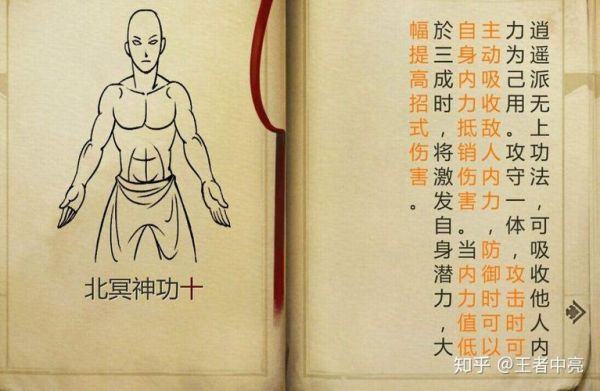 北冥神功十
逍遥派无上功法，可吸收他人内
力为己用。攻守一体，攻击时可
主动吸收敌人内力，防御时可以
自身内力抵销伤害。当内力值低
於三成时，将激发自身潜力，大
幅提高招式伤害。
知乎 @王者中亮